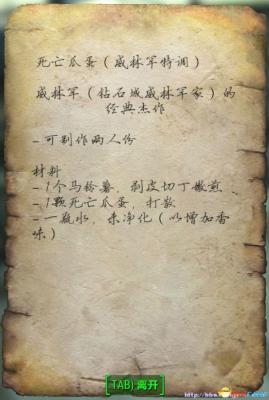 死亡瓜蛋（威林军特调）
威林军（钻石城威林军家）的
经典杰作
-可制作两人份
材料
-1个马铃薯，剥皮切丁嫩煎
-1颗死亡瓜蛋，打散
-一瓶水，未净化（以增加香
味）
TAB) 离开